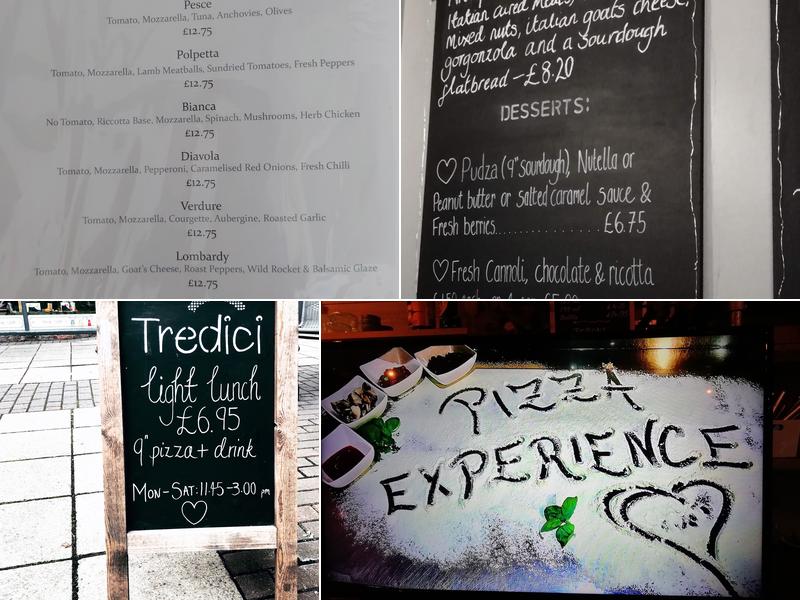 Pesce
Tomato, Mozzarella, Tuna, Anchovies, Olives
£12.75
Polpetta
Tomato, Mozzarella, Lamb Meatballs, Sundried Tomatoes, Fresh Peppers
£12.75
Bianca
No Tomato, Riccotta Base, Mozzarella, Spinach, Mushrooms, Herb Chicken
£12.75
Diavola
Tomato, Mozzarella, Pepperoni, Caramelised Red Onions, Fresh Chilli
£12.75
Verdure
Tomato, Mozzarella, Courgette, Aubergine, Roasted Garlic
£12.75
Lombardy
Tomato, Mozzarella, Goat's Cheese, Roast Peppers, Wild Rocket & Balsamic Glaze
£12.75
Italian cured meats,
Mixed nuts, italian goats cheese,
gorgonzola and a sourdough
flatbread - £8.20
DESSERTS:
Pudza (9" sourdough), Nutella or
Peanut butter or salted caramel sauce &
Fresh berries............£6.75
Fresh Cannoli, chocolate & ricotta
Tredici
light lunch
£6.95
9" pizza + drink
MON-SAT: 11.45-3.00 pm
PIZZA
EXPERIENCE